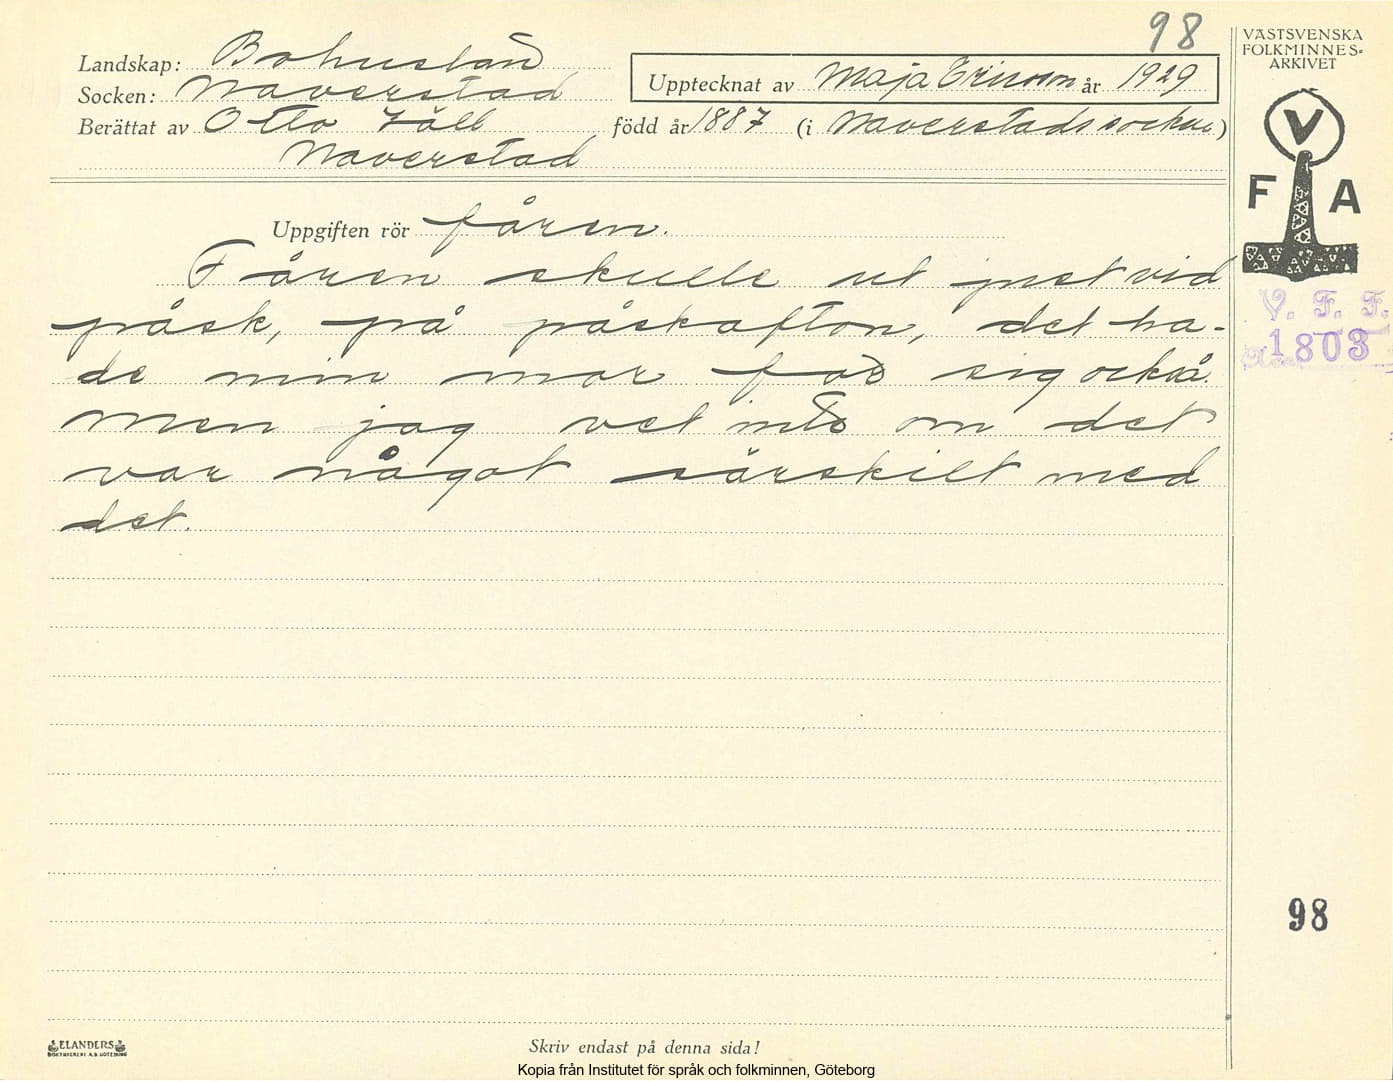 98
VÄSTSVENSKA
FOLKMINNES-
ARKIVET
Landskap: Bohuslän
Upptecknat av Maja Ericson år 1929
Socken: Naverstad
Berättat av Otto Häll född år 1887 (i Naverstads socken)
Naverstad
V
F A
Uppgiften rör fåren.
Fåren skulle ut just vid
påsk, på påskafton, det ha-
de min mor för sig också.
men jag vet inte om det
var något särskilt med
det.
V. F. F.
1803
98
ELANDERS
BOKTRYCKERI A.B. GÖTEBORG
Skriv endast på denna sida!
Kopia från Institutet för språk och folkminnen, Göteborg